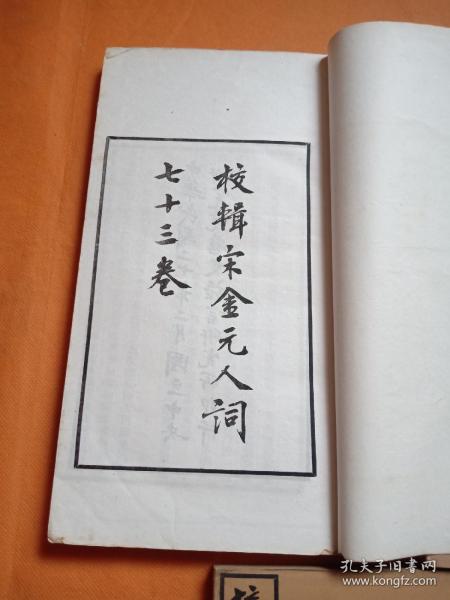 校輯宋金元人詞
七十三卷
校
孔夫子旧书网
www.kongfz.com